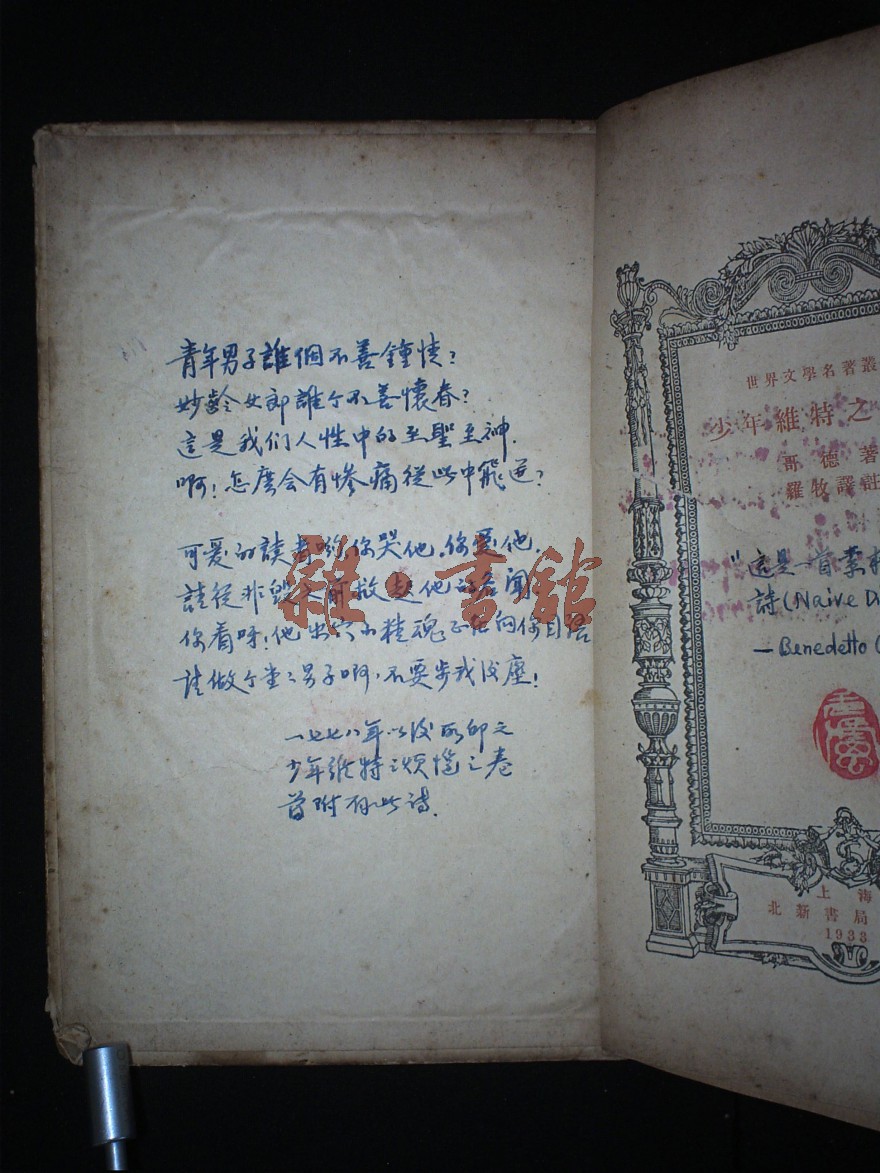 青年男子誰個不善鍾情?
妙齡女郎誰个不善懷春?
這是我们人性中的至聖至神.
啊!怎麼会有惨痛從此中飛逆?
可爱的讀者哟你哭他,你愛他,
請從非毁之前救起他的名聞
你看呀!他出穴的精魂正在向你目語
請做个堂々男子啊,不要步我後塵!
一七七八年以後所印之
少年維特之煩惱之卷
首附有此詩.
雜·書館
世界文學名著叢
少年維特之
哥德著
羅牧譯註
"這是一首素朴
詩(Naive D
—Benedetto C
上海
北新書局
1933